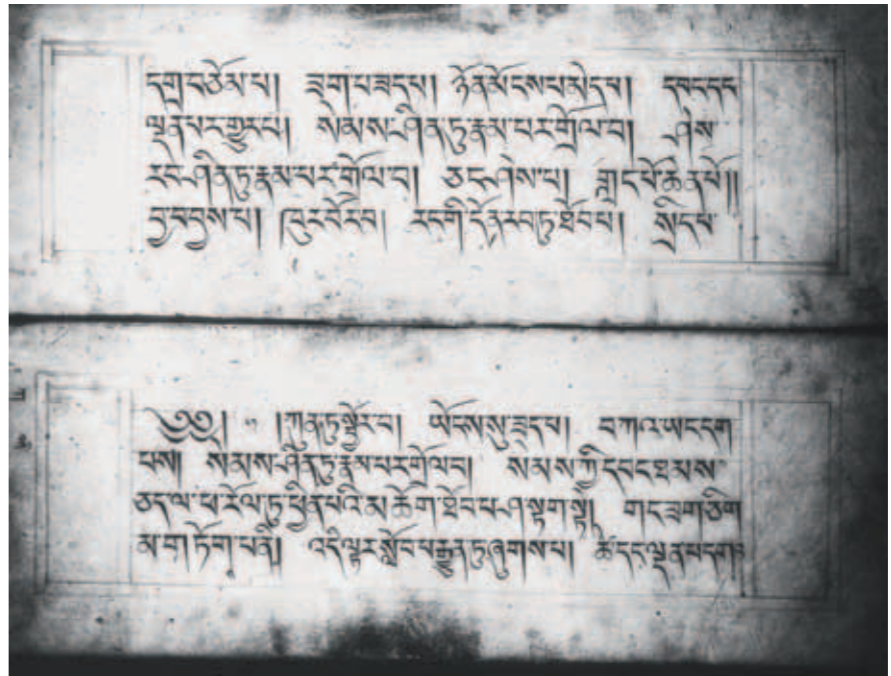 དགྲ་བཅོམ་པ། ཟག་པ་ཟད་པ། ཉོན་མོངས་པ་མེད་པ། དབང་དང
ལྡན་པར་གྱུར་པ། སེམས་ཤིན་ཏུ་རྣམ་པར་གྲོལ་བ། ཤེས
རབ་ཤིན་ཏུ་རྣམ་པར་གྲོལ་བ། ཅང་ཤེས་པ། གླང་པོ་ཆེན་པོ།།
བྱ་བ་བྱས་པ། ཁུར་བོར་བ། རང་གི་དོན་རབ་ཏུ་ཐོབ་པ། སྲིད་པ་
༄༅། །ཀུན་ཏུ་སྦྱོར་བ། ཡོངས་སུ་ཟད་པ། བཀའ་ཡང་དག
པས། སེམས་ཤིན་ཏུ་རྣམ་པར་གྲོལ་བ། སེམས་ཀྱི་དབང་ཐམས་
ཅད་ལ་ཕ་རོལ་ཏུ་ཕྱིན་པའི་མཆོག་ཐོབ་པ་ཤ་སྟག་སྟེ། གང་ཟག་ཅིག
མ་གཏོགས་པ་ནི། འདི་ལྟར་སློབ་པ་རྒྱུན་ཏུ་ཞུགས་པ། ཚེ་དང་ལྡན་པ་དགའ